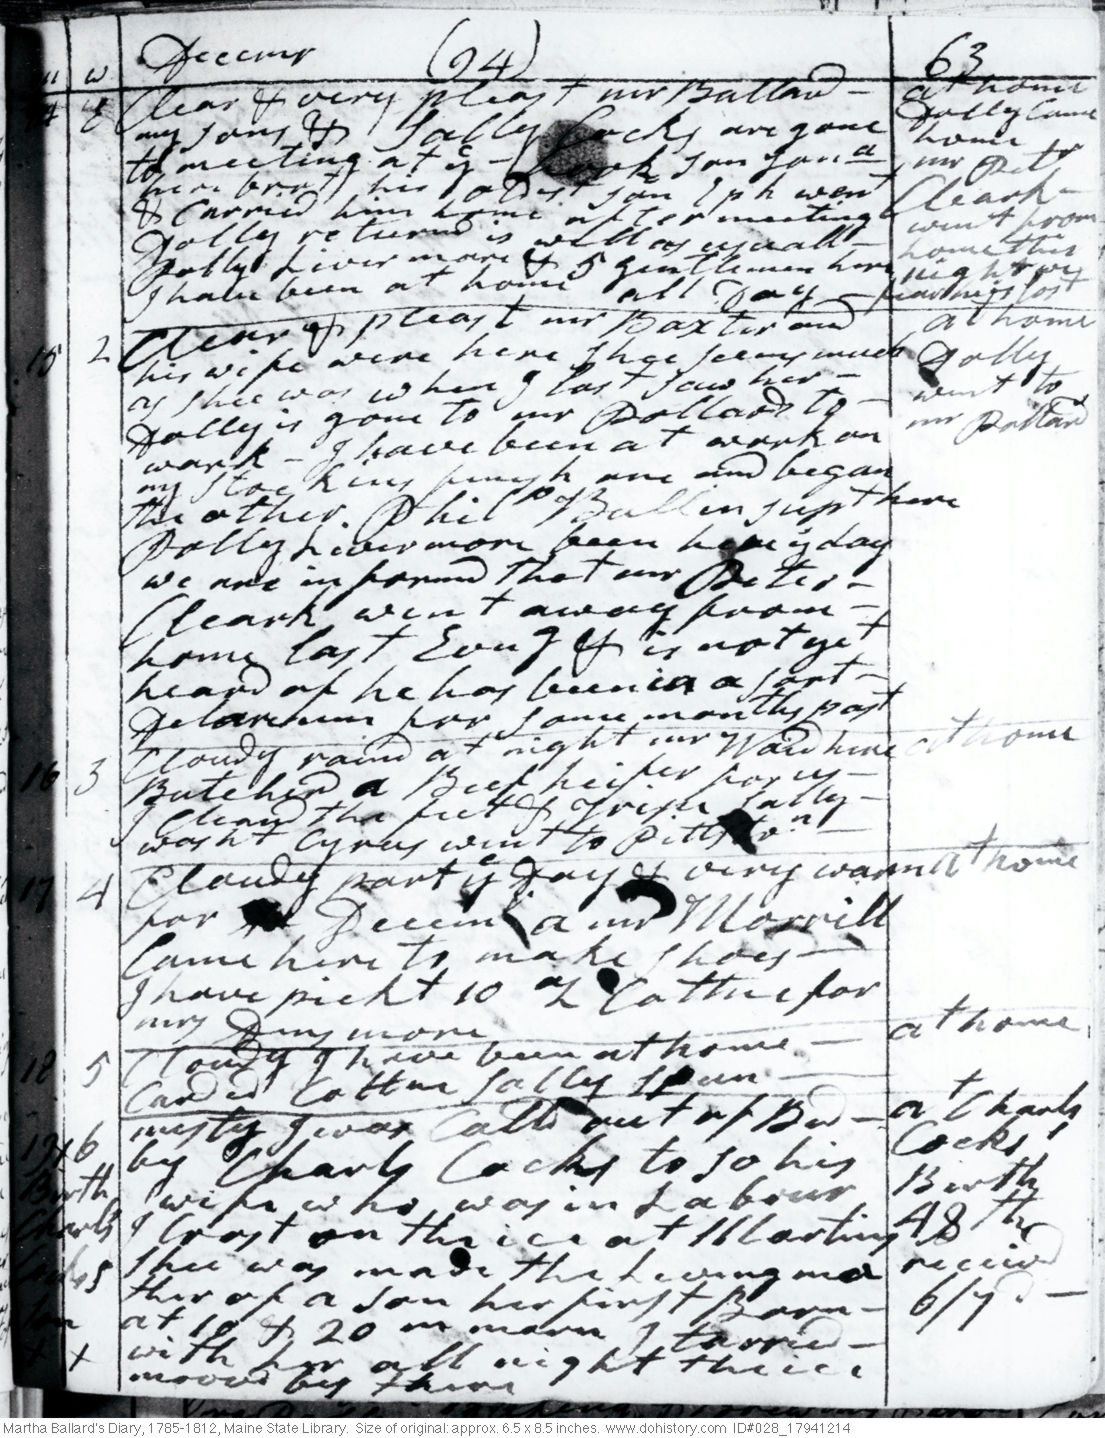 m w Decemr (94) 63
14 E Clear & very pleast mr Ballard - at home
my sons & Sally Cocks are gone Dolly Came
to meeting at ye - Cook son Jona home
here brot his oldest son Eph went mr Petr
& Carried him home after meeting Cleark
Dolly returnd is well as usuall - went from
Polly Livermore & 5 gentlemen here home this
I have been at home all Day - night we
fear he is lost
15 2 Clear & pleast mr Baxter and at home
his wife were here shee seems much Dolly
as shee was when I last saw her - went to
Dolly is gone to mr Pollards to - mr Pollard
work - I have been at work on
my Stockins finish one and began
the other. Philp Bullin supt here
Polly Livermore been here ye day
we are informd that mr Peter -
Cleark went away from -
home last Evng & is not yet
heard of he has been in a sort -
Delarium for some months past
16 3 Cloudy raind at night mr Ward here at home
Butcherd a Beef heifer for us -
I Cleand the feet & Tripe Sally -
washt Cyrus went to Pittston -
17 4 Cloudy part ye Day & very warm at home
for Decemr a mr Morrill
Came here to make shoes -
I have pickt 10 oz Cottne for
mrs Densmore
18 5 Cloudy I have been at home - at home
Carded Cottne Sally Spun -
19 x 6 misty I was Calld out of Bed - at Charls
by Charls Cocks to go his Cocks
Birth wife who was in Labour Birth
Charls I Crost on the ice at Martins 48 th
Cocks 5 Shee was made the Leving mo receivd
ther of a son her first Born - 6/7d -
son at 10 & 20 m morn I tarried -
x x with her all night the ice
moovd by there
Martha Ballard's Diary, 1785-1812, Maine State Library. Size of original: approx. 6.5 x 8.5 inches. www.dohistory.com ID#028_17941214